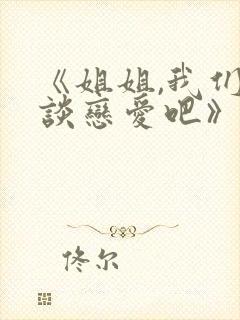 《姐姐,我们
談戀愛吧》
佟尔